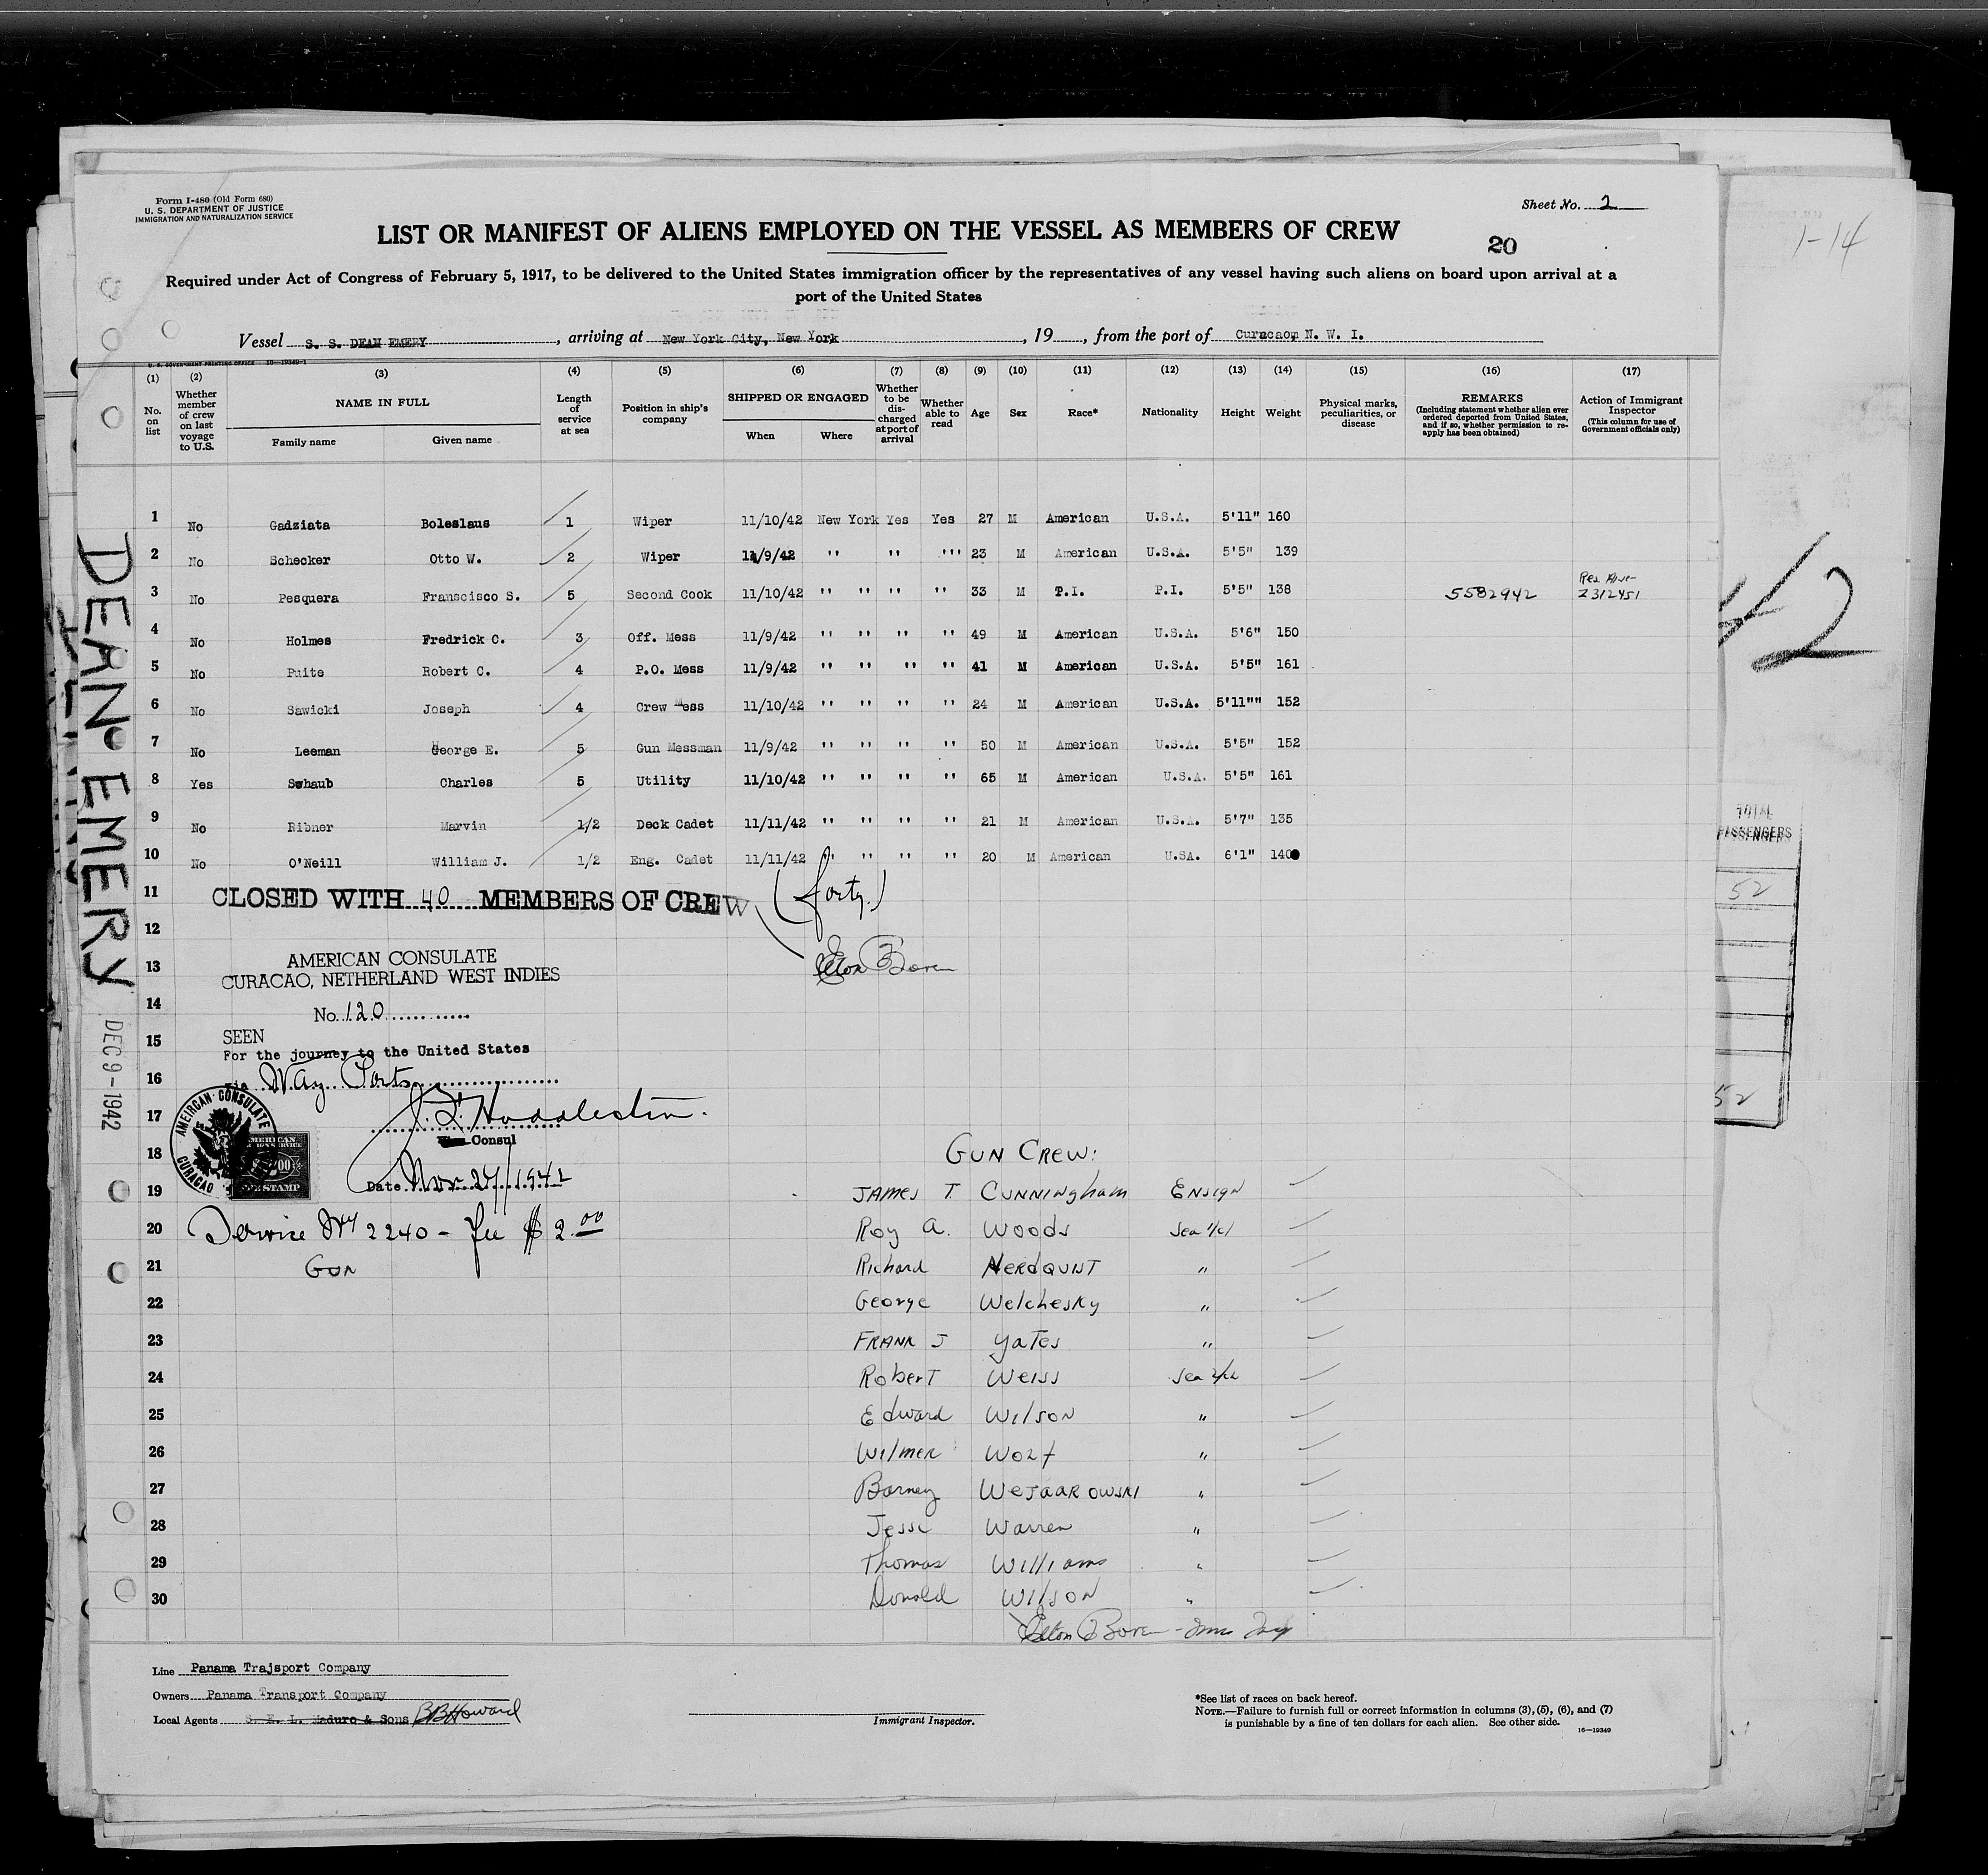 Form I-480 (Old Form 680)
U. S. DEPARTMENT OF JUSTICE
IMMIGRATION AND NATURALIZATION SERVICE
Sheet No. 2
LIST OR MANIFEST OF ALIENS EMPLOYED ON THE VESSEL AS MEMBERS OF CREW
20
1-14
Required under Act of Congress of February 5, 1917, to be delivered to the United States immigration officer by the representatives of any vessel having such aliens on board upon arrival at a
port of the United States
Vessel S. S. DEAN EMERY, arriving at New York City, New York, 19, from the port of Curacao, N. W. I.
U. S. GOVERNMENT PRINTING OFFICE 16—19349-1
(1) No. on list
(2) Whether member of crew on last voyage to U.S.
(3) NAME IN FULL Family name Given name
(4) Length of service at sea
(5) Position in ship's company
(6) SHIPPED OR ENGAGED When Where
(7) Whether to be dis-charged at port of arrival
(8) Whether able to read
(9) Age
(10) Sex
(11) Race*
(12) Nationality
(13) Height
(14) Weight
(15) Physical marks, peculiarities, or disease
(16) REMARKS (Including statement whether alien ever ordered deported from United States, and if so, whether permission to re-apply has been obtained)
(17) Action of Immigrant Inspector (This column for use of Government officials only)
1 No Gadziata Boleslaus 1 Wiper 11/10/42 New York Yes Yes 27 M American U.S.A. 5'11" 160
2 No Schecker Otto W. 2 Wiper 11/9/42 " " "' 23 M American U.S.A. 5'5" 139
3 No Pesquera Franscisco S. 5 Second Cook 11/10/42 " " " " 33 M P.I. P.I. 5'5" 138 5582942 2312451
4 No Holmes Fredrick C. 3 Off. Mess 11/9/42 " " " " 49 M American U.S.A. 5'6" 150
5 No Puite Robert C. 4 P.O. Mess 11/9/42 " " " " 41 M American U.S.A. 5'5" 161
6 No Sawicki Joseph 4 Crew Mess 11/10/42 " " " " 24 M American U.S.A. 5'11"" 152
7 No Leeman George E. 5 Gun Messman 11/9/42 " " " " 50 M American U.S.A. 5'5" 152
8 Yes Swhaub Charles 5 Utility 11/10/42 " " " " 65 M American U.S.A. 5'5" 161
9 No Ribner Marvin 1/2 Deck Cadet 11/11/42 " " " " 21 M American U.S.A. 5'7" 135
10 No O'Neill William J. 1/2 Eng. Cadet 11/11/42 " " " " 20 M American U.SA. 6'1" 140
11 CLOSED WITH 40 MEMBERS OF CREW (forty)
12
13 AMERICAN CONSULATE
CURACAO, NETHERLAND WEST INDIES
Elton Boren
14 No. 120
15 SEEN
For the journey to the United States
16 via Way Ports
17 J. L. Huddleston
Consul
AMERICAN CONSULATE CURACAO
18 GUN CREW:
Date Nov 27/1942
19 JAMES T. CUNNINGham ENSIGN
20 Service No 2240 - fee $ 2.00 Roy A. Woods Sea 1/cl
21 Gun Richard NERDQUIST "
22 George Welchesky "
23 FRANK J Yates "
24 Robert Weiss Sea 2/cl
25 Edward WilsoN "
26 Wilmer Wolf "
27 Barney WEJAAROWSKI "
28 Jesse Warren "
29 Thomas Williams "
30 Donald WilsoN "
Elton Boren
DEAN EMERY
DEC 9 - 1942
42
TOTAL
PASSENGERS
52
52
Line Panama Trajsport Company
Owners Panama Transport Company
Local Agents S. E. L. Maduro & Sons BBHoward
Immigrant Inspector.
*See list of races on back hereof.
NOTE.—Failure to furnish full or correct information in columns (3), (5), (6), and (7)
is punishable by a fine of ten dollars for each alien. See other side.
16—19349